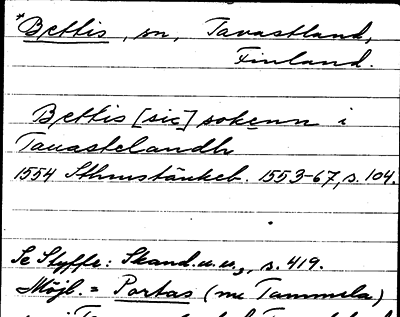 *Bettis, sn, Tavastland,
Finland.
Bettis [sic] sokenn i
Tauastelandh
1554 Sthmstänkeb. 1553-67, s. 104.
Se Styffe: Skand. u. u., s. 419.
Möjl. = Portas (nu Tammela)